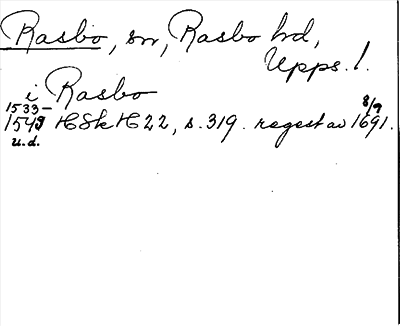 Rasbo, sn, Rasbo hd,
Upps. l.
i Rasbo
1533–
1549 HSkH 22, s. 319. regest av 8/9 1691.
u.d.